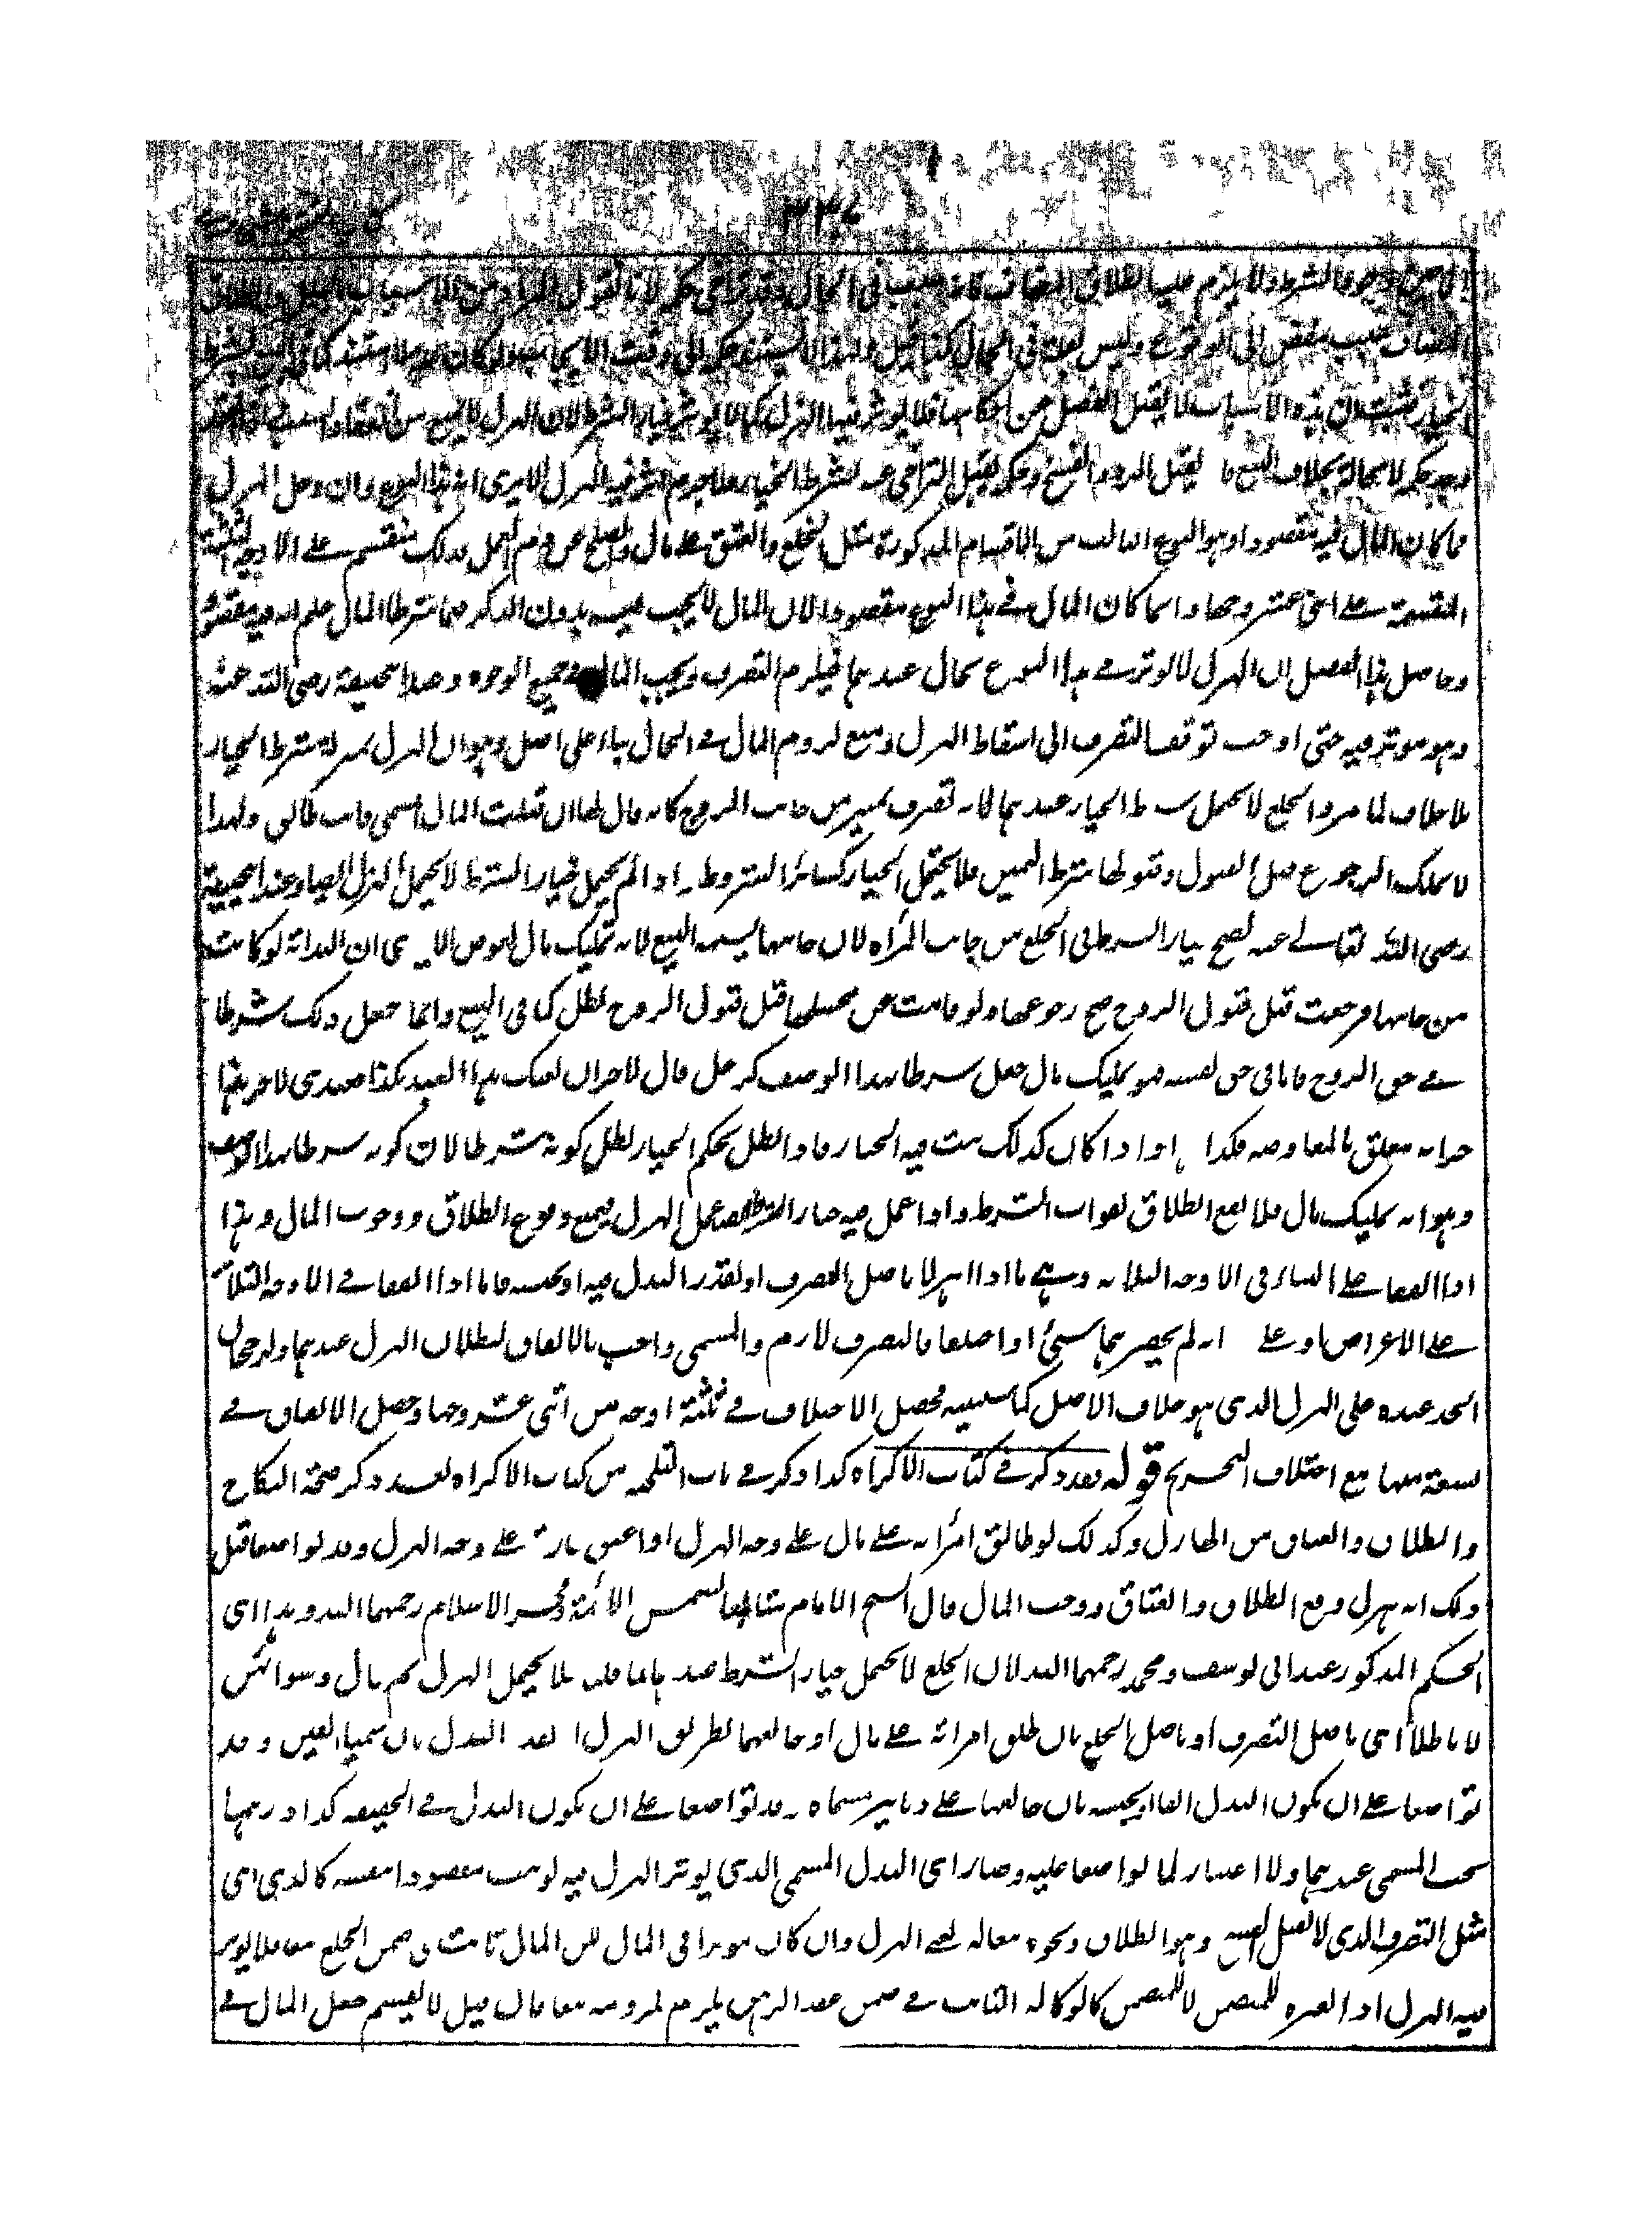 اليمين وجود الشرط ولا يلزم عليه الطلاق المضاف فانه في الحال وقد تراخى حكمه لانا نقول المراد من الاسباب العلل والطلاق
المضاف سبب مفض الى الوقوع وليس بعلة في الحال ولهذا لا يستند حكمه الى وقت الايجاب ولو كان علة لاستند كما في البيع بشرط
الخيار فثبت ان هذه الاسباب لا تقبل الفصل عن احكامها فلا يؤثر فيها الهزل كما لا يؤثر خيار الشرط لان الهزل لا يمنع من انعقاد السبب
حكمه لا محالة بخلاف البيع يقبل الرد والفسخ وحكمه يقبل التراخي عنه بشرط الخيار فلا جرم اثر فيه الهزل الا يرى ان هذا النوع وان دخل الهزل
ما كان المال فيه مقصودا وهو النوع الثالث من الاقسام المذكورة مثل الخلع والعتق على مال والصلح عن دم العمد كذلك منقسم على الاوجه الثلثة
المنقسمة على اثنى عشر وجها وانما كان المال في هذا النوع مقصودا لان المال لا يجب فيه بدون الذكر فلما شرطا المال علم انه فيه مقصود
وحاصل هذا الفصل ان الهزل لا يؤثر في هذا النوع بحال عندهما فيلزم التصرف ويجب المال في جميع الوجوه وعند ابي حنيفة رضى الله عنه
وهو مؤثر فيه حتى اوجب توقف التصرف الى اسقاط الهزل ومنع لزوم المال في الحال بناء على اصل وهو ان الهزل بمنزلة شرط الخيار
بلا خلاف لما مر والخلع لا يحتمل شرط الخيار عندهما لانه تصرف يمين من جانب الزوج كانه قال لها ان قبلت المال المسمى فانت طالق ولهذا
لا يملك الرجوع قبل القبول وقبولها شرط اليمين فلا يحتمل الخيار كسائر الشروط واذا لم يحتمل خيار الشرط لا يحتمل الهزل ايضا وعند ابي حنيفة
رضى الله تعالى عنه يصح خيار الشرط في الخلع من جانب المرأة لان جانبها يشبه البيع لانه تمليك مال بعوض الا يرى ان البداية لو كانت
من جانبها فرجعت قبل قبول الزوج صح رجوعها ولو قامت عن مجلسها قبل قبول الزوج بطل كما في البيع وانما جعل ذلك شرطا
في حق الزوج فاما في حق نفسه فهو تمليك مال جعل شرطا بهذا الوصف كرجل قال لاخر ان بعتك هذا العبد بكذا فعبدى الاخر هذا
حر انه معلق بالمعاوضة فكذا هذا واذا كان كذلك ثبت فيه الخيار فاذا بطل بحكم الخيار بطل كونه شرطا لان كونه شرطا بهذا الوصف
وهو انه تمليك مال فلا يقع الطلاق لفوات الشرط واذا عمل فيه خيار الشرط عمل الهزل فيمنع وقوع الطلاق ووجوب المال وهذا
اذا اتفقا على البناء في الاوجه الثلاثة وهي ما اذا اهزلا باصل التصرف او بقدر البدل فيه او بجنسه فاما اذا اتفقا في الاوجه الثلاثة
على الاعراض او على انه لم يحضرهما شيئ او اختلفا فالتصرف لازم والمسمى واجب بالاتفاق لبطلان الهزل عندهما ولرجحان
الجد عنده على الهزل الذى هو خلاف الاصل كما سنبينه فحصل الاختلاف في ثلثة اوجه من اثنى عشر وجها وحصل الاتفاق في
تسعة منها مع اختلاف التخريج قوله فقد ذكر في كتاب الاكراه كذا ذكر في باب التلجئة من كتاب الاكراه بعد ذكر صحة النكاح
والطلاق والعتاق من الهازل وكذلك لو طلق امرأته على مال على وجه الهزل او اعتق جاريته على وجه الهزل وقد تواضعا قبل
ذلك انه هزل وقع الطلاق والعتاق ووجب المال قال الشيخ الامام شمس الأئمة وفخر الاسلام رحمهما الله وهذا اى
الحكم المذكور عند ابى يوسف ومحمد رحمهما الله لان الخلع لا يحتمل خيار الشرط عندهما لما قلنا فلا يحتمل الهزل ثم قال وسواء هزلا
باصله اى باصل التصرف او باصل الخلع بان طلق امرأته على مال او خالعها بطريق الهزل او بقدر البدل بان سميا الفين وقد
تواضعا على ان يكون البدل الفا او بجنسه بان خالعها على دنانير مسماة وقد تواضعا على ان يكون البدل في الحقيقة كذا درهما
يجب المسمى عندهما ولا اعتبار لما تواضعا عليه وصار اى البدل المسمى الذى يؤثر الهزل فيه لو ثبت مقصودا بنفسه كالذى اى
مثل التصرف الذى لا يقبل الفسخ وهو الطلاق ونحوه تبعا له يعنى الهزل وان كان مؤثرا في المال لكن المال ثابت فى ضمن الخلع تبعا فلا يؤثر
فيه الهزل اذ العبرة للمتضمن لا للمتضمن كالوكالة الثابتة في ضمن عقد الرهن يلزم بلزومه تبعا فان قيل لا نسلم جعل المال في